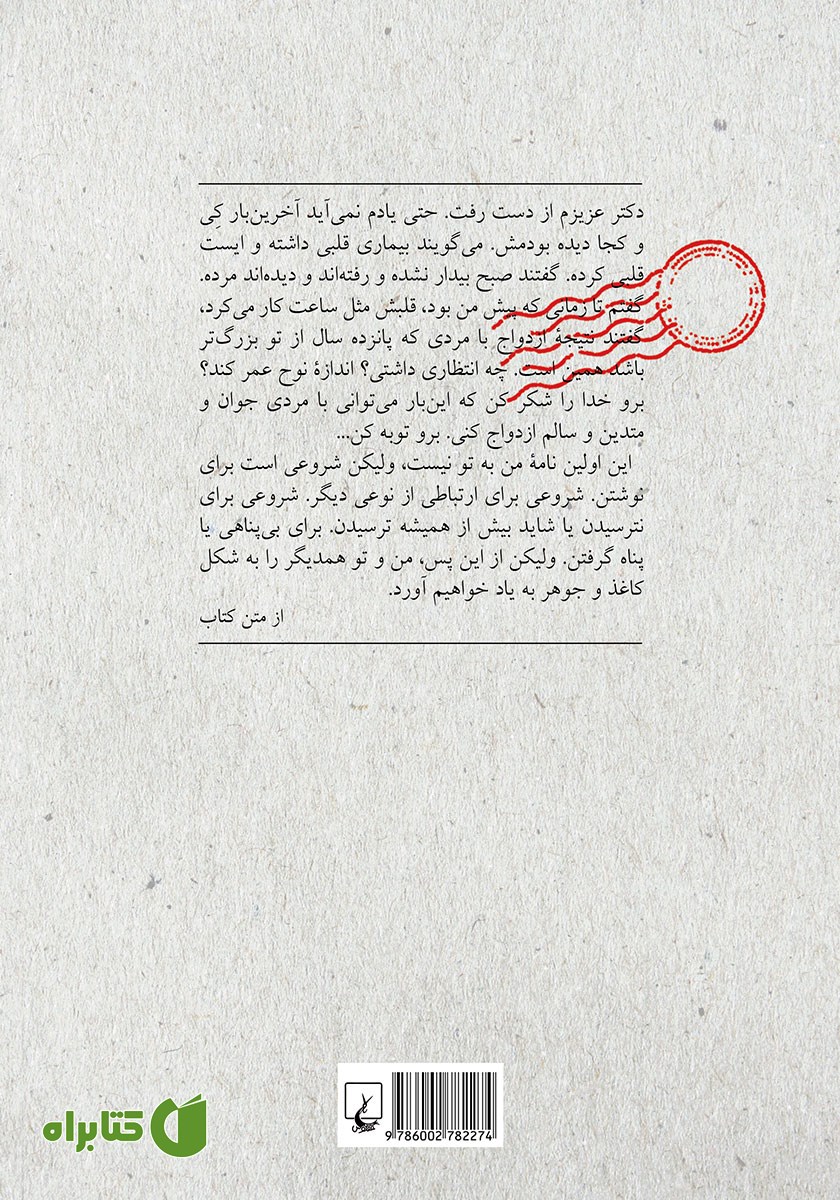 دکتر عزیزم از دست رفت. حتی یادم نمی‌آید آخرین‌بار کِی
و کجا دیده بودمش. می‌گویند بیماری قلبی داشته و ایست
قلبی کرده. گفتند صبح بیدار نشده و رفته‌اند و دیده‌اند مرده.
گفتم تا زمانی که پیش من بود، قلبش مثل ساعت کار می‌کرد،
گفتند نتیجهٔ ازدواج با مردی که پانزده سال از تو بزرگ‌تر
باشد همین است. چه انتظاری داشتی؟ اندازهٔ نوح عمر کند؟
برو خدا را شکر کن که این‌بار می‌توانی با مردی جوان و
متدین و سالم ازدواج کنی. برو توبه کن...
این اولین نامهٔ من به تو نیست، ولیکن شروعی است برای
نوشتن. شروعی برای ارتباطی از نوعی دیگر. شروعی برای
نترسیدن یا شاید بیش از همیشه ترسیدن. برای بی‌پناهی یا
پناه گرفتن. ولیکن از این پس، من و تو همدیگر را به شکل
کاغذ و جوهر به یاد خواهیم آورد.
از متن کتاب
9 786002 782274
کتابراه